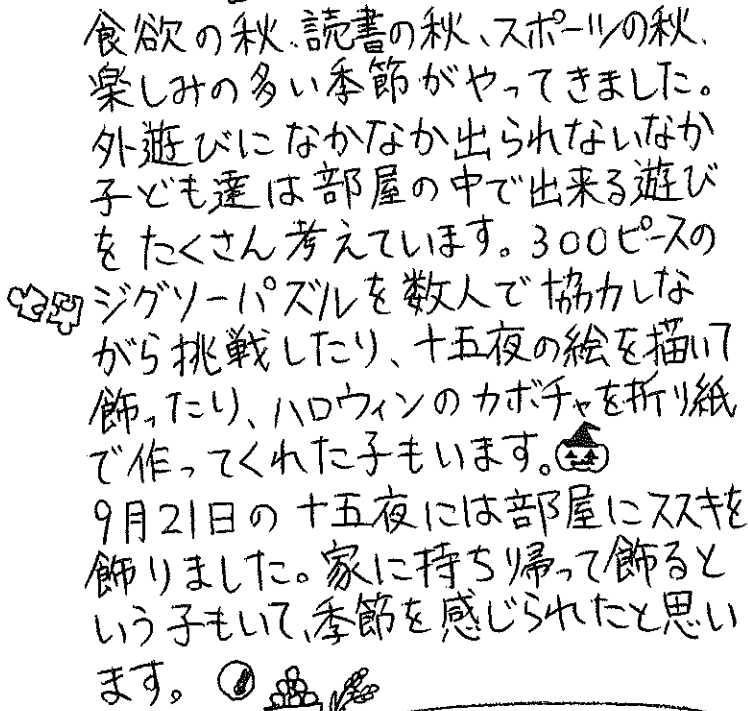 食欲の秋、読書の秋、スポーツの秋、
楽しみの多い季節がやってきました。
外遊びになかなか出られないなか
子ども達は部屋の中で出来る遊び
をたくさん考えています。300ピースの
ジグソーパズルを数人で協力しな
がら挑戦したり、十五夜の絵を描いて
飾ったり、ハロウィンのカボチャを折り紙
で作ってくれた子もいます。
9月21日の十五夜には部屋にススキを
飾りました。家に持ち帰って飾ると
いう子もいて、季節を感じられたと思い
ます。